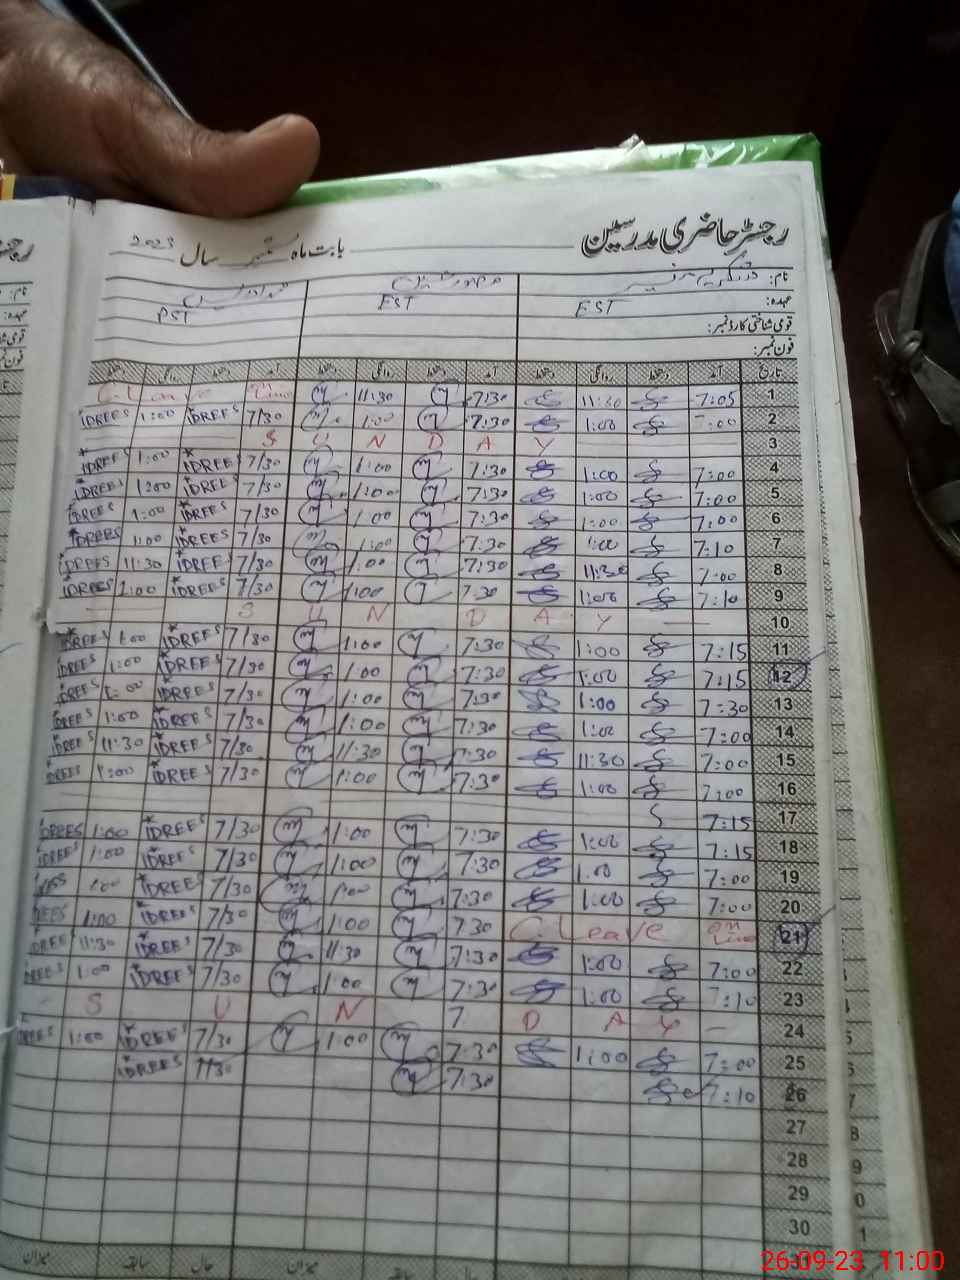 رجسٹر حاضری مدرسین بابت ماہ ستمبر سال 2023
نام:
عہدہ: EST EST PST
قومی شناختی کارڈ نمبر:
فون نمبر:
تاریخ آمد دستخط روانگی دستخط آمد دستخط روانگی دستخط آمد دستخط روانگی دستخط
1 7:05 11:30 7:30 11:30 on Line C Leave
2 7:00 1:00 7:30 1:00 7/30 IDREES 1:00 IDREES
3 S U N D A Y
4 7:00 1:00 7:30 1:00 7/30 IDREES 1:00 IDREES
5 7:00 1:00 7:30 1:00 7/30 IDREES 1:00 IDREES
6 7:00 1:00 7:30 1:00 7/30 IDREES 1:00 IDREES
7 7:10 1:00 7:30 1:00 7/30 IDREES 1:00 IDREES
8 7:00 11:30 7:30 1:00 7/30 IDREES 11:30 IDREES
9 7:10 1:00 7:30 1:00 7/30 IDREES 1:00 IDREES
10 S U N D A Y
11 7:15 1:00 7:30 1:00 7/30 IDREES 1:00 IDREES
12 7:15 1:00 7:30 1:00 7/30 IDREES 1:00 IDREES
13 7:30 1:00 7:30 1:00 7/30 IDREES 1:00 IDREES
14 7:00 1:00 7:30 1:00 7/30 IDREES 1:00 IDREES
15 7:00 11:30 7:30 11:30 7/30 IDREES 11:30 IDREES
16 7:00 1:00 7:30 1:00 7/30 IDREES 1:00 IDREES
17 7:15
18 7:15 1:00 7:30 1:00 7/30 IDREES 1:00 IDREES
19 7:00 1:00 7:30 1:00 7/30 IDREES 1:00 IDREES
20 7:00 1:00 7:30 1:00 7/30 IDREES 1:00
21 on Line C Leave 7:30 1:00 7/30 IDREES 1:00
22 7:00 1:00 7:30 11:30 7/30 IDREES 11:30
23 7:10 1:00 7:30 1:00 7/30 IDREES 1:00
24 S U N D A Y
25 7:00 1:00 7:30 1:00 7/30 IDREES 1:00
26 7:10 7:30 7/30 IDREES
27
28
29
30
میزان سابقہ حال میزان سابقہ
26-09-23 11:00